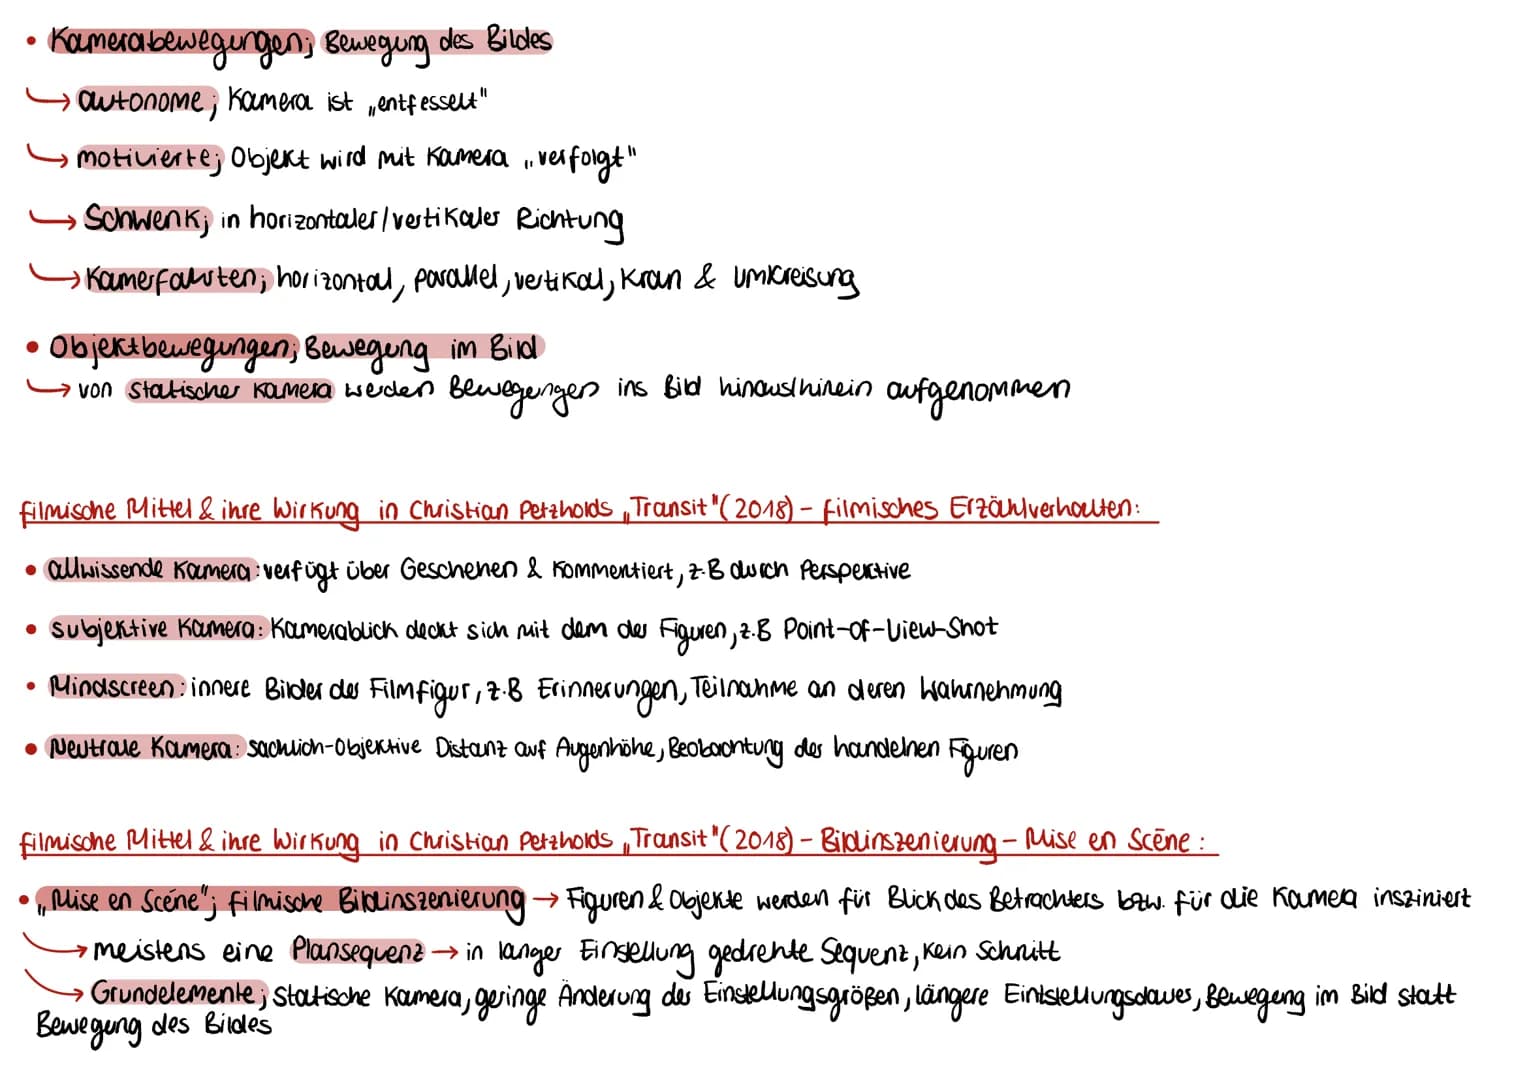 • Kamerabewegungen; Bewegung des Bildes
↳ autonome; Kamera ist „entfesselt"
↳ motivierte; Objekt wird mit Kamera „verfolgt"
↳ Schwenk; in horizontaler/vertikaler Richtung
↳ Kamerfahrten; horizontal, parallel, vertikal, Kran & Umkreisung
• Objektbewegungen; Bewegung im Bild
↳ von statischer Kamera werden Bewegengen ins Bild hinaus/hinein aufgenommen
filmische Mittel & ihre Wirkung in Christian Petzholds „Transit" (2018) – filmisches Erzählverhalten:
• allwissende Kamera: verfügt über Geschehen & kommentiert, z.B durch Perspektive
• subjektive Kamera: Kamerablick deckt sich mit dem der Figuren, z.B Point-of-View-Shot
• Mindscreen: innere Bilder der Filmfigur, z.B Erinnerungen, Teilnahme an deren Wahrnehmung
• Neutrale Kamera: sachlich-objektive Distanz auf Augenhöhe, Beobachtung der handelnen Figuren
filmische Mittel & ihre Wirkung in Christian Petzholds „Transit" (2018) – Bildinszenierung – Mise en Scēne:
• „Mise en Scéne"; filmische Bildinszenierung → Figuren & Objekte werden für Blick des Betrachters bzw. für die Kamera insziniert
↳ meistens eine Plansequenz → in langer Einsellung gedrehte Sequenz, kein Schnitt
↳ Grundelemente; Statische Kamera, geringe Änderung der Einstellungsgrößen, längere Eintstellungsdauer, Bewegung im Bild statt
Bewegung des Bildes